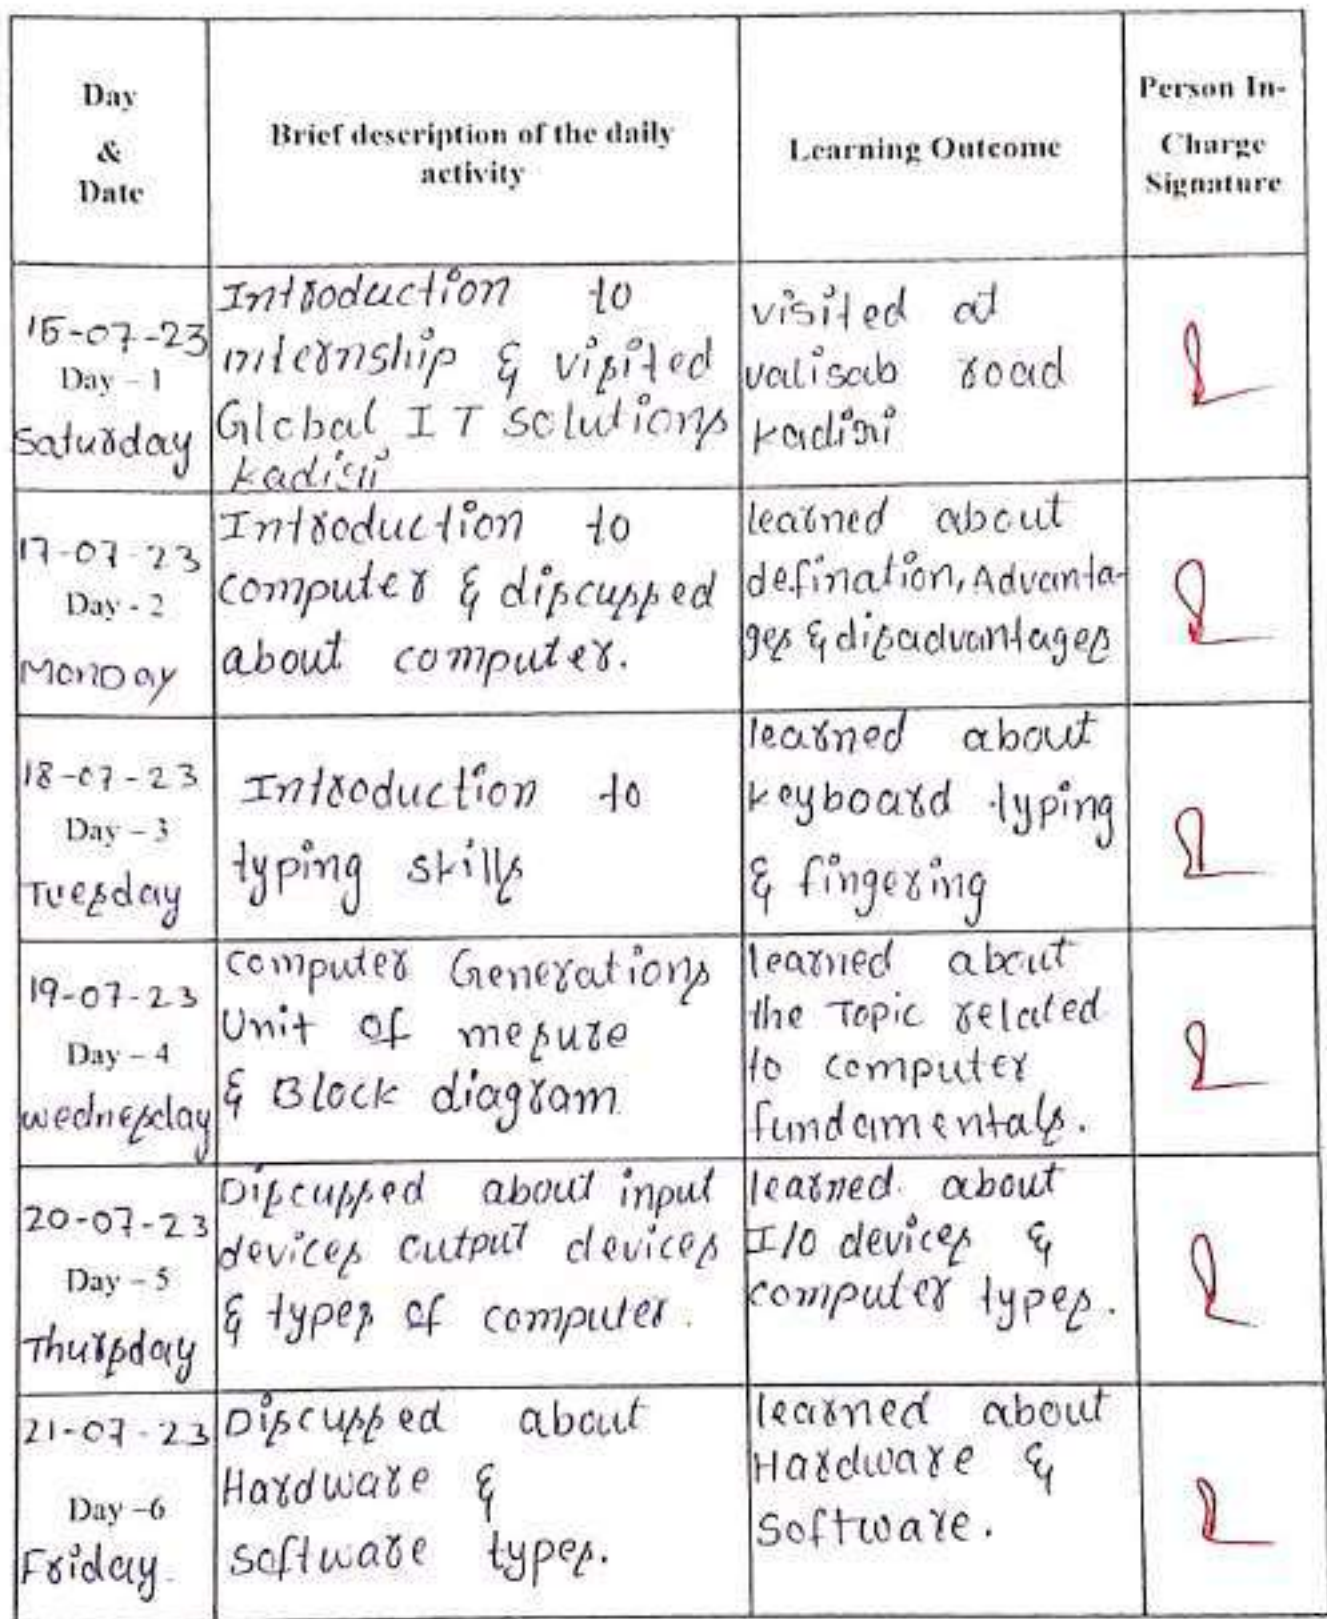 Day
&
Date
Brief description of the daily
activity
Learning Outcome
Person In-
Charge
Signature
15-07-23
Day - 1
Saturday
Introduction to
internship & visited
Global IT Solutions
kadiri
visited at
valisab road
kadiri
17-07-23
Day - 2
Monday
Introduction to
computer & discussed
about computer.
learned about
defination, Advanta-
ges & disadvantages
18-07-23
Day - 3
Tuesday
Introduction to
typing skills
learned about
keyboard typing
& fingering
19-07-23
Day - 4
wednesday
computer Generations
Unit of mesure
& Block diagram
learned about
the Topic related
to computer
fundamentals.
20-07-23
Day - 5
Thursday
Discussed about input
devices output devices
& types of computer.
learned about
I/O devices &
computer types.
21-07-23
Day -6
Friday.
Discussed about
Hardware &
software types.
learned about
Hardware &
Software.